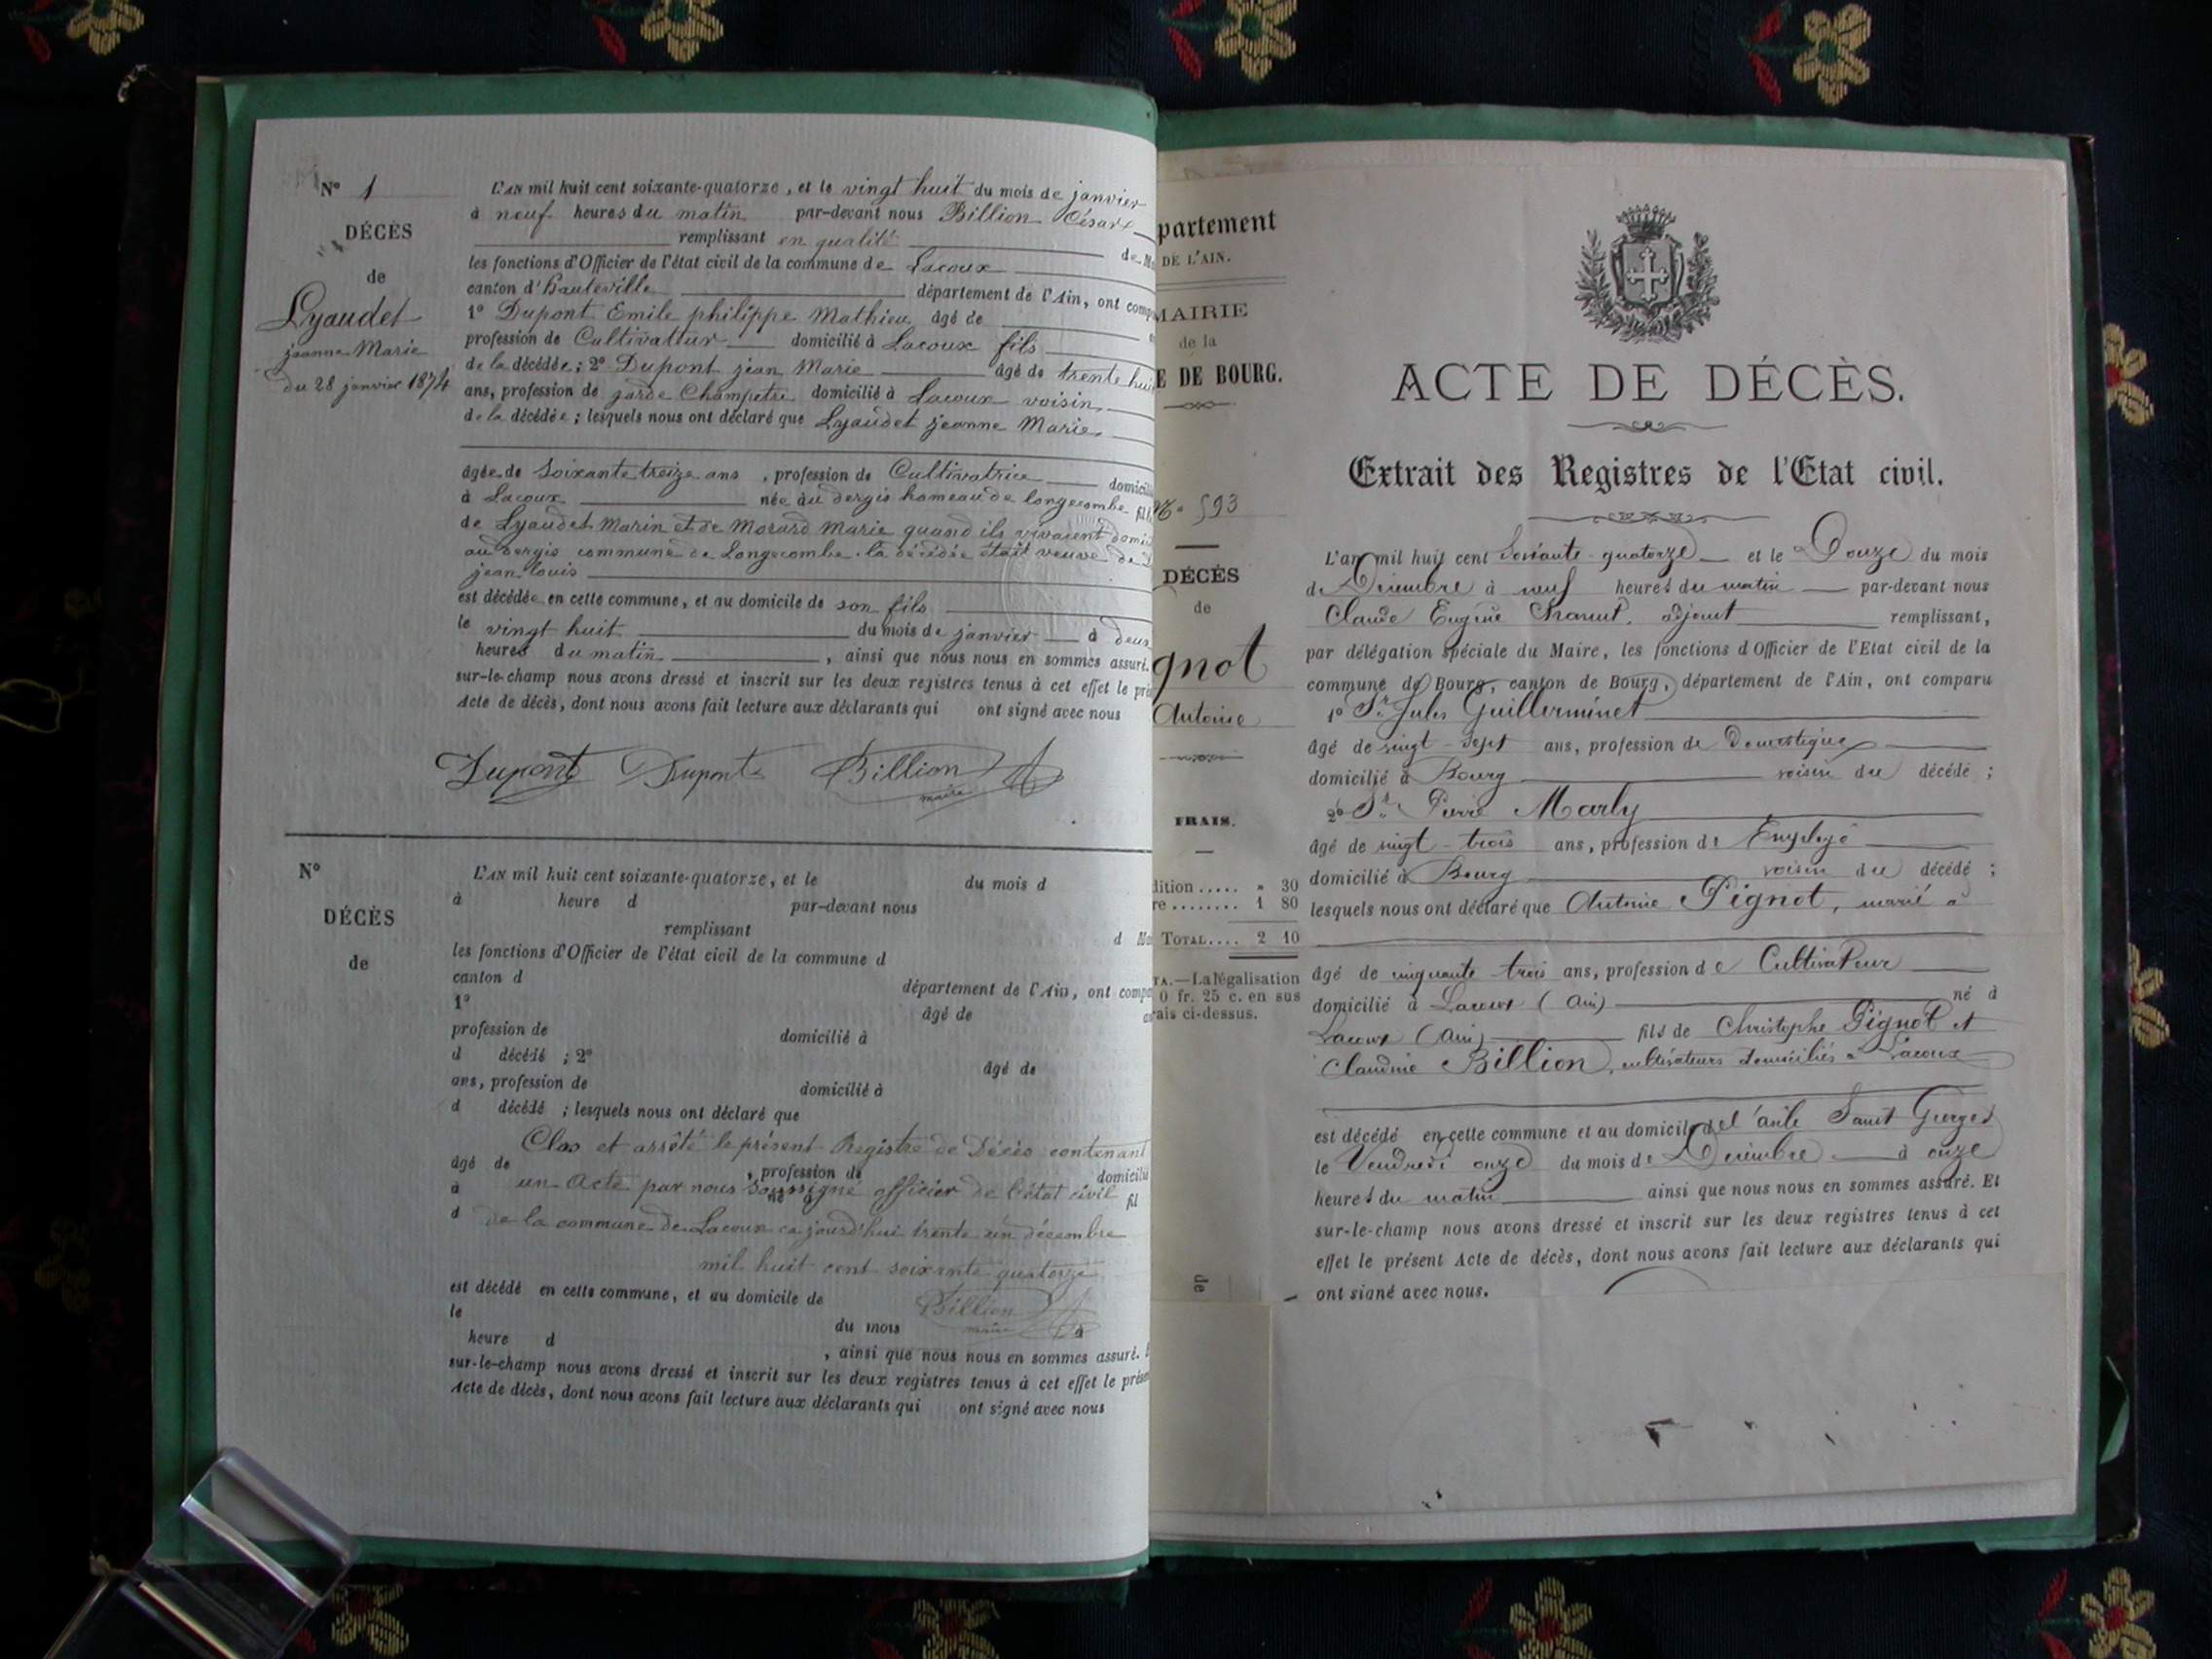 N° 1
DÉCÈS
de
Lyaudet
jeanne Marie
du 28 janvier 1874
L'AN mil huit cent soixante-quatorze, et le vingt huit du mois de janvier
à neuf heures du matin par-devant nous Billion César
remplissant en qualité de M
les fonctions d'Officier de l'état civil de la commune de Lacoux
canton d'hauteville département de l'Ain, ont comp
1° Dupont Emile philippe Mathieu âgé de
profession de Cultivattur domicilié à Lacoux fils
de la décédée; 2° Dupont jean Marie âgé de trente huit
ans, profession de garde Champetre domicilié à Lacoux voisin
de la décédée; lesquels nous ont déclaré que Lyaudet jeanne Marie
âgée de Soixante treize ans, profession de Cultivatrice domicili
à Lacoux née au dergis hameau de longecombe fill
de Lyaudet Marin et de Morard Marie quand ils vivaient domi
au dergis commune de Longecombe la décédée était veuve de D
jean louis
est décédée en cette commune, et au domicile de son fils
le vingt huit du mois de janvier à deux
heures du matin, ainsi que nous nous en sommes assuré.
sur-le-champ nous avons dressé et inscrit sur les deux registres tenus à cet effet le pré
Acte de décès, dont nous avons fait lecture aux déclarants qui ont signé avec nous
Dupont Dupont Billion
maire
N°
DÉCÈS
de
L'AN mil huit cent soixante-quatorze, et le du mois d
à heure d par-devant nous
remplissant d M
les fonctions d'Officier de l'état civil de la commune d
canton d département de l'Ain, ont comp
1° âgé de
profession de domicilié à
d décédé ; 2° âgé de
ans, profession de domicilié à
d décédé ; lesquels nous ont déclaré que
Clos et arrêté le présent Registre de Décès contenant
âgé de , profession de domicilié
un Acte par nous soussigné officier de l'état civil
à né fil
d de la commune de Lacoux ce jourd'hui trente un décembre
mil huit cent soixante quatorze
est décédé en cette commune, et au domicile de
Billion
maire
le du mois à
heure d , ainsi que nous nous en sommes assuré. E
sur-le-champ nous avons dressé et inscrit sur les deux registres tenus à cet effet le prése
Acte de décès, dont nous avons fait lecture aux déclarants qui ont signé avec nous
partement
DE L'AIN.
MAIRIE
de la
E DE BOURG.
N° 593
DÉCÈS
de
gnot
Antoine
FRAIS.
dition ..... » 30
re ........ 1 80
TOTAL.... 2 10
TA.—La légalisation
0 fr. 25 c. en sus
rais ci-dessus.
de
ACTE DE DÉCÈS.
Extrait des Registres de l'Etat civil.
L'an mil huit cent soixante-quatorze et le Douze du mois
de Décembre à neuf heures du matin par-devant nous
Claude Eugène adjoint remplissant,
par délégation spéciale du Maire, les fonctions d'Officier de l'Etat civil de la
commune de Bourg, canton de Bourg, département de l'Ain, ont comparu
1° Sr. Jules Guillerminet
âgé de vingt-sept ans, profession de Domestique
domicilié à Bourg voisin du décédé ;
2° Sr. Pierre Marly
âgé de vingt-trois ans, profession de Employé
domicilié à Bourg voisin du décédé ;
lesquels nous ont déclaré que Antoine Pignot, marié à
âgé de cinquante trois ans, profession de Cultivateur
domicilié à Lacoux (Ain) né à
Lacoux (Ain) fils de Christophe Pignot et
Claudine Billion, cultivateurs domiciliés à Lacoux
est décédé en cette commune et au domicile de l'asile Saint Georges
le Vendredi onze du mois de Décembre à onze
heures du matin ainsi que nous nous en sommes assuré. Et
sur-le-champ nous avons dressé et inscrit sur les deux registres tenus à cet
effet le présent Acte de décès, dont nous avons fait lecture aux déclarants qui
ont signé avec nous.